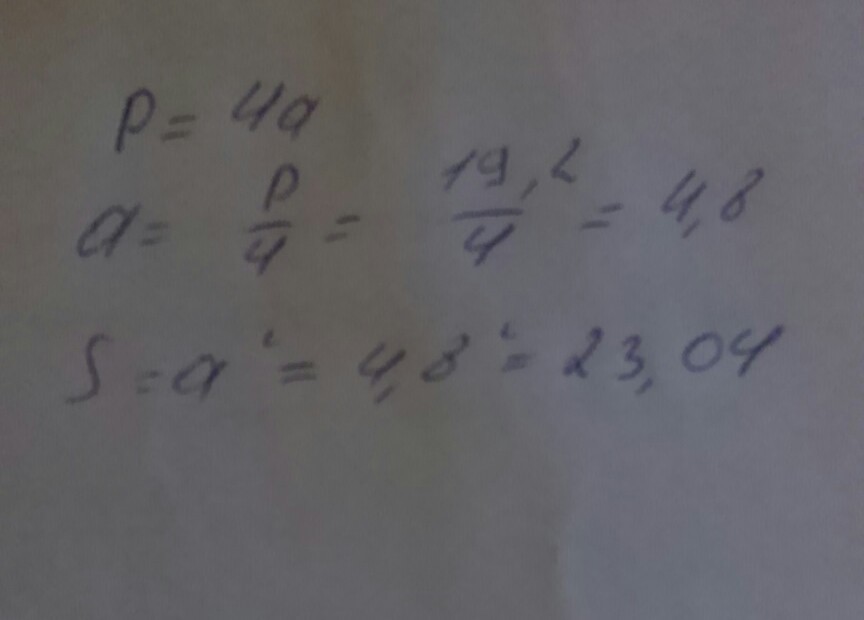 P = 4a
a = P/4 = 19,2/4 = 4,8
S = a² = 4,8² = 23,04